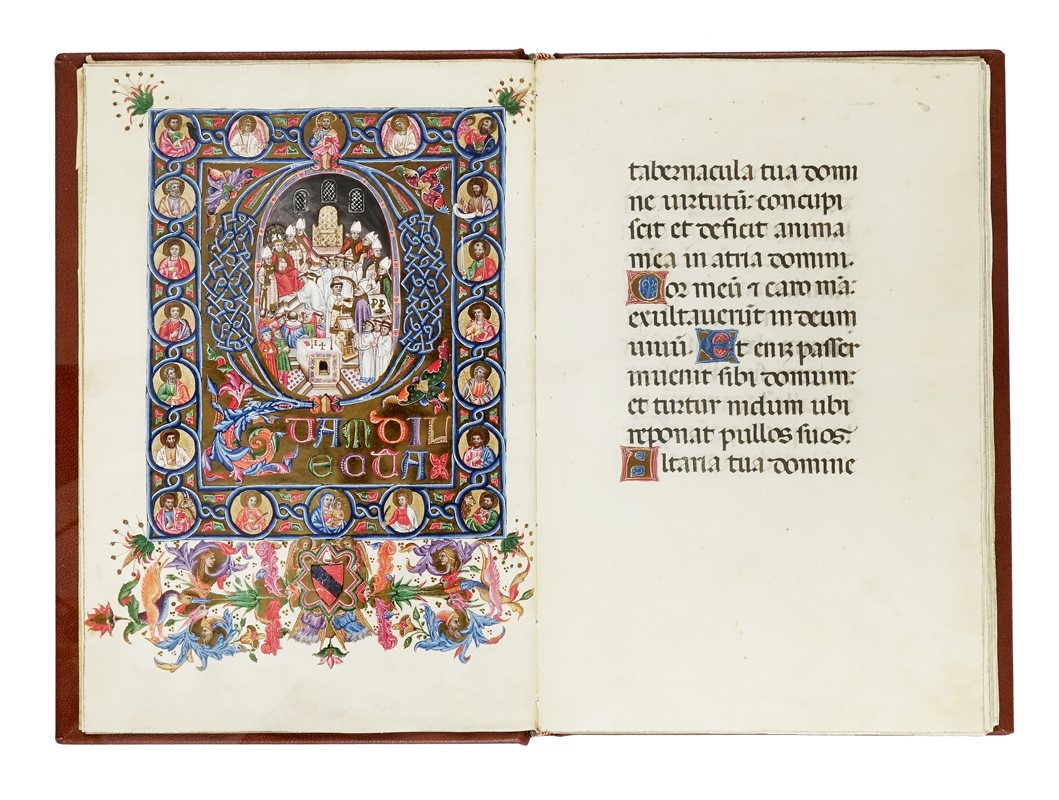 QUAM DIL
ECTA
tabernacula tua domi
ne uirtutũ: concupi
scit et deficit anima
mea in atria domini.
Cor meũ ⁊ caro mã:
exultauerũt in deum
uiuũ. Et eniʒ passer
inuenit sibi domum:
et turtur nidum ubi
reponat pullos suos:
Altaria tua domine